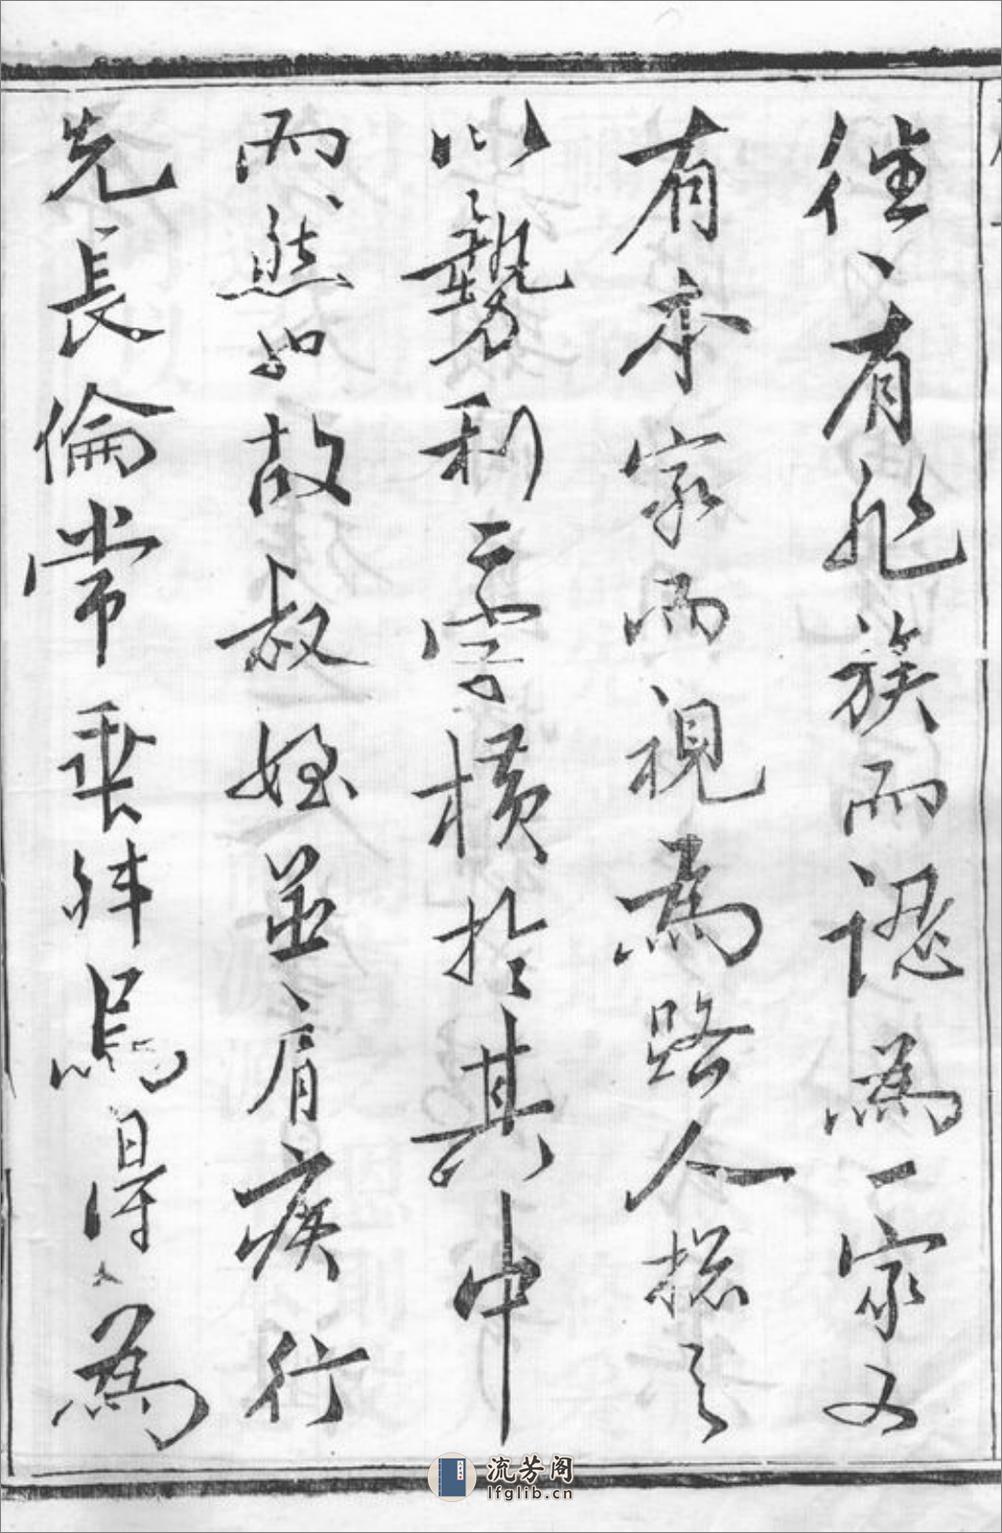 往、有非族而認為一家又
有本家而視為路人揔之
以勢利二字橫於其中
而然也故叔姪並肩疾行
先長倫常乖舛焉得為
流芳阁
lfglib.cn